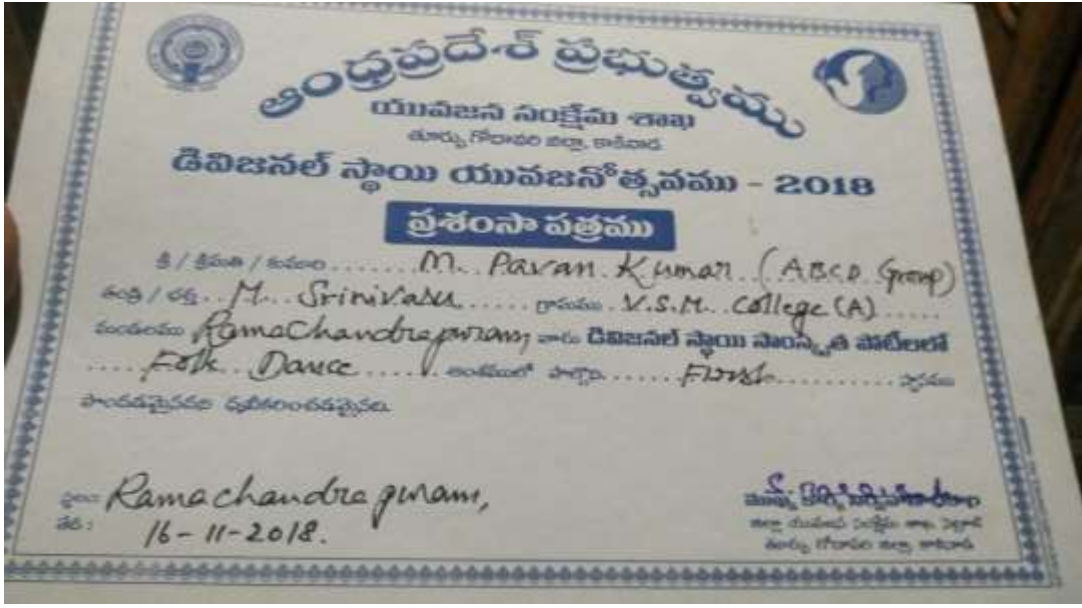 ఆంధ్రప్రదేశ్ ప్రభుత్వము
యువజన సంక్షేమ శాఖ
తూర్పు గోదావరి జిల్లా, కాకినాడ
డివిజనల్ స్థాయి యువజనోత్సవము - 2018
ప్రశంసా పత్రము
శ్రీ / శ్రీమతి / కుమారి ........ M. Pavan Kumar (ABCD Group)
తండ్రి / భర్త .. M... Srinivasu ...... గ్రామము . V.S.M. College (A) .....
మండలము Ramachandrapuram, వారు డివిజనల్ స్థాయి సాంస్కృత పోటీలలో
.... Folk Dance ...... అంశములో పాల్గొని ...... First ........... స్థానము
పొందడమైనదని ధృవీకరించడమైనది.
స్థలం: Ramachandrapuram,
తేది : 16-11-2018.
జిల్లా యువజన సంక్షేమ శాఖ,
తూర్పు గోదావరి జిల్లా, కాకినాడ